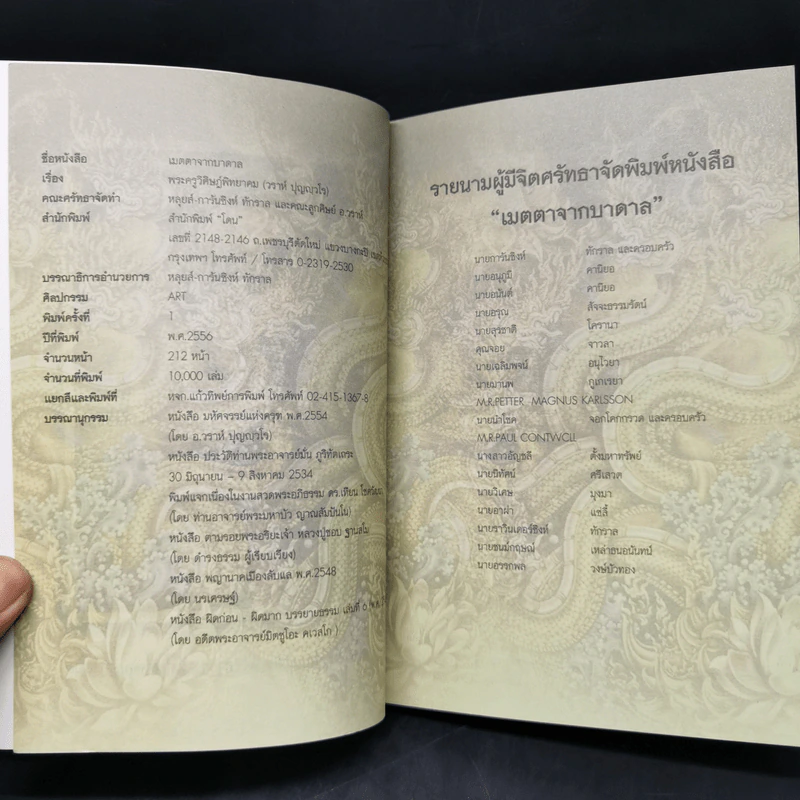 ชื่อหนังสือ เมตตาจากบาดาล
เรื่อง พระครูวิศิษฎ์พิทยาคม (วราห์ ปุญญวโร)
คณะศรัทธาจัดทำ หลุยส์-การันซิงห์ ทักราล และคณะลูกศิษย์ อ.วราห์
สำนักพิมพ์ สำนักพิมพ์ "โดน"
เลขที่ 2148-2146 ถ.เพชรบุรีตัดใหม่ แขวงบางกะปิ
กรุงเทพฯ โทรศัพท์ / โทรสาร 0-2319-2530
บรรณาธิการอำนวยการ หลุยส์-การันซิงห์ ทักราล
ศิลปกรรม ART
พิมพ์ครั้งที่ 1
ปีที่พิมพ์ พ.ศ.2556
จำนวนหน้า 212 หน้า
จำนวนที่พิมพ์ 10,000 เล่ม
แยกสีและพิมพ์ที่ หจก.แก้วทิพย์การพิมพ์ โทรศัพท์ 02-415-1367-8
บรรณานุกรรม หนังสือ มหัศจรรย์แห่งครุฑ พ.ศ.2554
(โดย อ.วราห์ ปุญญวโร)
หนังสือ ประวัติท่านพระอาจารย์มั่น ภูริทัตเถระ
30 มิถุนายน - 9 สิงหาคม 2534
พิมพ์แจกเนื่องในงานสวดพระอภิธรรม ดร.เทียน
(โดย ท่านอาจารย์พระมหาบัว ญาณสัมปันโน)
หนังสือ ตามรอยพระอริยะเจ้า หลวงปู่ชอบ ฐานสโม
(โดย ดำรงธรรม ผู้เรียบเรียง)
หนังสือ พญานาคเมืองลับแล พ.ศ.2548
(โดย นรเศรษฐ์)
หนังสือ ผิดก่อน - ผิดมาก บรรยายธรรม เล่มที่ 6
(โดย อดีตพระอาจารย์มิตซูโอะ คเวสโก )
รายนามผู้มีจิตศรัทธาจัดพิมพ์หนังสือ
"เมตตาจากบาดาล"
นายการันซิงห์ ทักราล และครอบครัว
นายอนุภูมิ คานิยอ
นายอนันต์ คานิยอ
นายอรุณ สัจจะธรรมรัตน์
นายสุรชาติ โครานา
คุณจอย จาวลา
นายเฉลิมพจน์ อนุไวยา
นายมานพ กูเกเรยา
M.R.PETTER, MAGNUS KARLSSON
นายนำโชค จอกโคกกรวด และครอบครัว
M.R.PAUL CONTWOLL
นางสาวอัญชลี ตั้งมหาทรัพย์
นายนิทัศน์ ศรีเลวต
นายวิเศษ มุงมา
นายอาผ่า แซลี้
นายราวินเตอร์ซิงห์ ทักราล
นายชนม์กฤษณ์ เหล่าธนอนันทน์
นายอรรถพล วงษ์บัวทอง